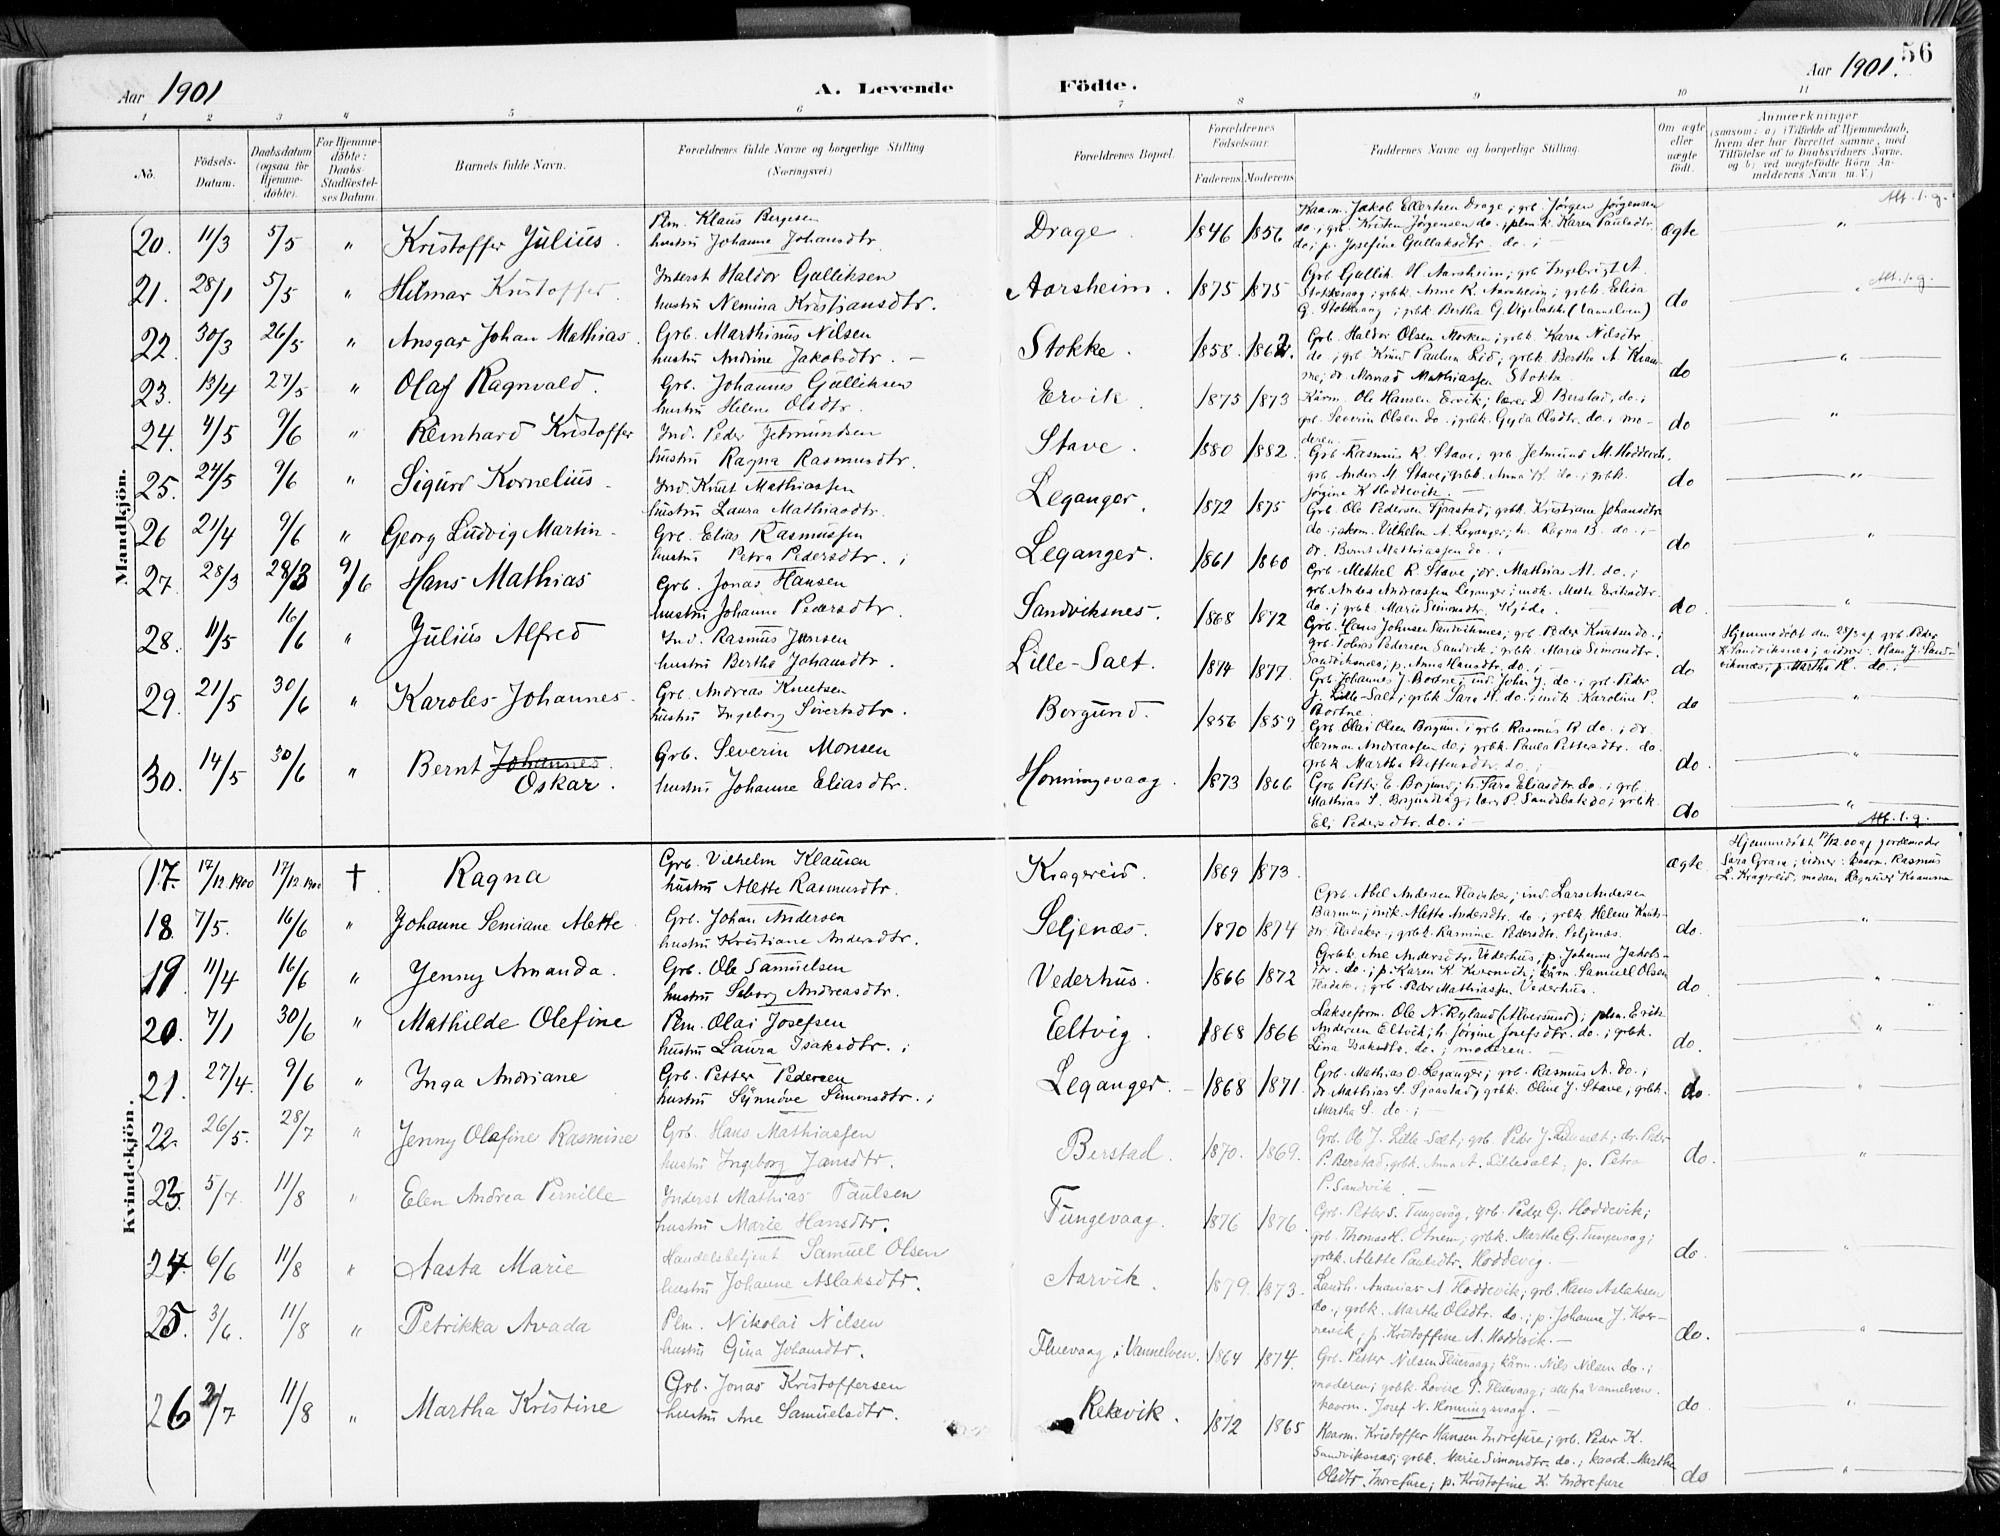 56
Aar 1901
A. Levende
Födte.
Aar 1901.
1 2 3 4 5 6 7 8 9 10 11
No.
Födsels-Datum.
Daabsdatum (ogsaa för Hjemme-döbte).
For Hjemme-döbte: Daabs-Stadfæstel-ses Datum.
Barnets fulde Navn.
Forældrenes fulde Navne og borgerlige Stilling (Næringsvei.)
Forældrenes Bopæl.
Forældrenes Födselsaar.
Faderens. Moderens.
Faddernes Navne og borgerlige Stilling.
Om ægte eller uægte födt.
Anmærkninger
(saasom: a) i Tilfælde af Hjemmedaab, hvem der har forrettet samme, med Tilföielse af to Daabsvidners Navne, og b) ved uægtefödte Börn An-melderens Navn m. V.)
Mandkjön.
20. 11/3 5/5 " Kristoffer Julius. Plm. Klaus Bergesen
hustru Johanne Johansdtr. Drage. 1846 1856 Kaarm. Jakob Ellertsen Drage; grb. Jørgen Jørgensen
do; grb. Kristen Jørgensen do.; plm.k. Karen Paulsdtr.
do; p. Josefine Gullaksdtr. do.; ægte "
21. 28/1 5/5 " Hilmar Kristoffer. Inderst Haldor Gulliksen
hustru Nemina Kristjansdtr. Aarsheim. 1875 1875 Grb. Gullik H. Aarsheim; grb. Ingebrigt A.
Stokkevaag; grbk. Anne K. Aarsheim; grbk. Elisa
G. Stokkevaag; grbk. Bertha G. (Vannelven) do "
22. 30/3 26/5 " Ansgar Johan Mathias. Grb. Marthinus Nilsen
hustru Andrine Jakobsdtr. Stokke. 1858. 1862. Grb. Haldor Olsen Morken; grbk. Karen Nilsdtr.
do; grb. Knud Paulsen Eid; grbk. Berthe A.
dr. Monrad Mathiassen Stokke. do "
23. 13/4 27/5 " Olaf Ragnvald. Grb. Johannes Gulliksen
hustru Helene Olsdtr. Ervik. 1875 1873 Kårm. Ole Hansen Ervik; lærer D. Berstad, do.;
grb. Severin Olsen do.; grbk. Gyda Olsdtr. do.; mo-
deren. do "
24. 4/5 9/6 " Reinhard Kristoffer Ind. Peder Jetmundsen
hustru Ragna Rasmusdtr. Stave. 1880 1882. Grb. Rasmus R. Stave; grb. Jetmund M. Hoddevik,
grb. Anders M. Stave; grbk. Anna K. do.; grbk.
Jørgine K. Hoddevik. do "
25. 24/5 9/6 " Sigurd Kornelius. Ind. Knut Mathiassen
hustru Laura Mathiasdtr. Leganger. 1872 1875 Grb. Ole Pedersen Sjaastad; grbk. Kristiane Johansdtr.
do.; skom. Vilhelm A. Leganger; h. Ragna B. do.;
dr. Bernt Mathiassen do. do "
26 21/4 9/6 " Georg Ludvig Martin. Grb. Elias Rasmussen
hustru Petra Pedersdtr.; Leganger. 1861 1860 Grb. Mekkel R. Stave; dr. Mathias M. do.;
grb. Anders Andreassen Leganger; indk. Mette Eriksdtr.
do.; grbk. Marie Simonsdtr. Kjøde. do "
27. 28/3 28/3 9/6 Hans Mathias Grb. Jonas Hansen
hustru Johanne Pedersdtr. Sandviksnes. 1868 1872 Grb. Hans Johnsen Sandviksnes; grb. Peder Knutsen do.;
grb. Tobias Pedersen Sandvik; grbk. Marie Simonsdtr.
Sandviksnes; p. Anna Hansdtr. do.; do. Hjemmedøbt den 28/3 af grb. Peder
K. Sandviksnes; vidner: Hans J. Sand-
viksnes, p. Martha H. do.;
28. 11/5 16/6 " Julius Alfred Ind. Rasmus Jansen
hustru Berthe Johansdtr. Lille-Salt. 1874 1877. Grb. Johannes J. Bortne; ind. John J. do.; grb. Peder
J. Lille-Salt; grbk. Sara A. do.; indk. Karoline P.
Bortne. do "
29. 21/5 30/6 " Karoles Johannes. Grb. Andreas Knutsen
hustru Ingeborg Sivertsdtr. Borgund. 1856 1859 Grb. Olai Olsen Borgund; grb. Rasmus R. do.; dr.
Herman Andreassen do.; grbk. Paula Pettersdtr. do.
grbk. Martha Steffensdtr. do.; do "
30. 14/5 30/6 " Bernt Johannes Oskar. Grb. Severin Monsen
hustru Johanne Eliasdtr. Honningsvaag. 1873 1866 Grb. Petter E. Borgund; h. Sara Eliasdtr. do.; grb.
Mathias S. Borgundvåg; lærer P. Sandsbak do.; grbk.
Eli Pedersdtr. do.; do "
Kvindekjön.
17. 17/12.1900 17/12.1900 † Ragna Grb. Vilhelm Klausen
hustru Alette Rasmusdtr. Kragereid. 1869 1873. ægte Hjemmedøbt 17/12.00 af jordemoder
Sara Graun; vidner: kaarm. Rasmus
L. Kragereid, madam Ragnhild
18. 7/5. 16/6 " Johanne Semiane Alette. Grb. Johan Andersen
hustru Kristiane Andersdtr. Seljenæs. 1870 1874 Grb. Abel Andersen Fladaker; ind. Lars Andersen
Barmen; indk. Alette Andersdtr. do.; grbk. Helene Knuts-
dtr. Fladaker; grbk. Rasmine Pedersdtr. Seljenæs. do. "
19. 11/4 16/6 " Jenny Amanda. Grb. Ole Samuelsen
hustru Seborg Andreasdtr. Vederhus. 1866 1872 Grbk. Ane Andersdtr. Vederhus; p. Johanne Jakobs-
dtr. do.; p. Karen K. ; kårm. Samuel Olsen
Fladaker; grb. Peder Mathiassen Vederhus. do. "
20. 7/1 30/6 " Mathilde Olefine Plm. Olai Josefsen
hustru Laura Isaksdtr.; Eltvig. 1868 1866 Lakseform. Ole N. Ryland (Alversund); plm. Erik
Andersen Eltvik; h. Jørgine Josefsdtr. do.; grbk.
Lina Isaksdtr. do.; moderen. do. "
21. 27/4. 9/6 " Inga Andriane Grb. Petter Pedersen
hustru Synnøve Simonsdtr.; Leganger. 1868 1871. Grb. Mathias O. Leganger; grb. Rasmus A. do.;
dr. Mathias S. Sjaastad; grbk. Oline J. Stave; grbk.
Martha S. do.; do.
22. 26/5. 28/7 " Jenny Olefine Rasmine Grb. Hans Mathiassen
hustru Ingeborg Jansdtr. Berstad. 1870. 1869. Grb. Ole J. Lille-Salt; grb. Peder J. Lillesalt; dr. Peder
P. Berstad; grbk. Anna A. Lillesalt; p. Petra
P. Sandvik. do. "
23. 5/7. 11/8 " Elen Andrea Pernille Inderst Mathias Paulsen
hustru Marie Hansdtr. Tungevaag. 1876 1876. Grb. Petter S. Tungevåg, grb. Peder G. Hoddevik;
grb. Thomas H. Otnem; grbk. Marthe G. Tungevaag;
grbk. Alette Paulsdtr. Hoddevig. do. "
24. 6/6 11/8 " Aasta Marie Handelsbetjent Samuel Olsen
hustru Johanne Aslaksdtr. Aarvik. 1879. 1873. Landh. Ananias A. Hoddevik; grb. Hans Aslaksen
do.; grbk. Marthe Olsdtr. do.; p. Johanne J.
p. Kristoffine A. Hoddevik. do. "
25. 3/6. 11/8 " Petrikka Avada Plm. Nikolai Nilsen
hustru Gina Johansdtr. Fluevaag i Vannelven. 1864 1874. Grb. Petter Nilsen Fluevaag; kårm. Nils Nilsen do.;
moderen; grbk. Lovise P. Fluevaag; alle fra Vannelven.
kaarm. Josef N. Honningsvaag. do "
26 2/7 11/8 " Martha Kristine Grb. Jonas Kristoffersen
hustru Ane Samuelsdtr. Rekevik. 1872 1865 Kaarm. Kristoffer Hansen Indrefure; grb. Peder K.
Sandviksnæs; grbk. Marie Simonsdtr. do.; kaark. Marthe
Olsdtr. Indrefure; p. Kristofine K. Indrefure do "